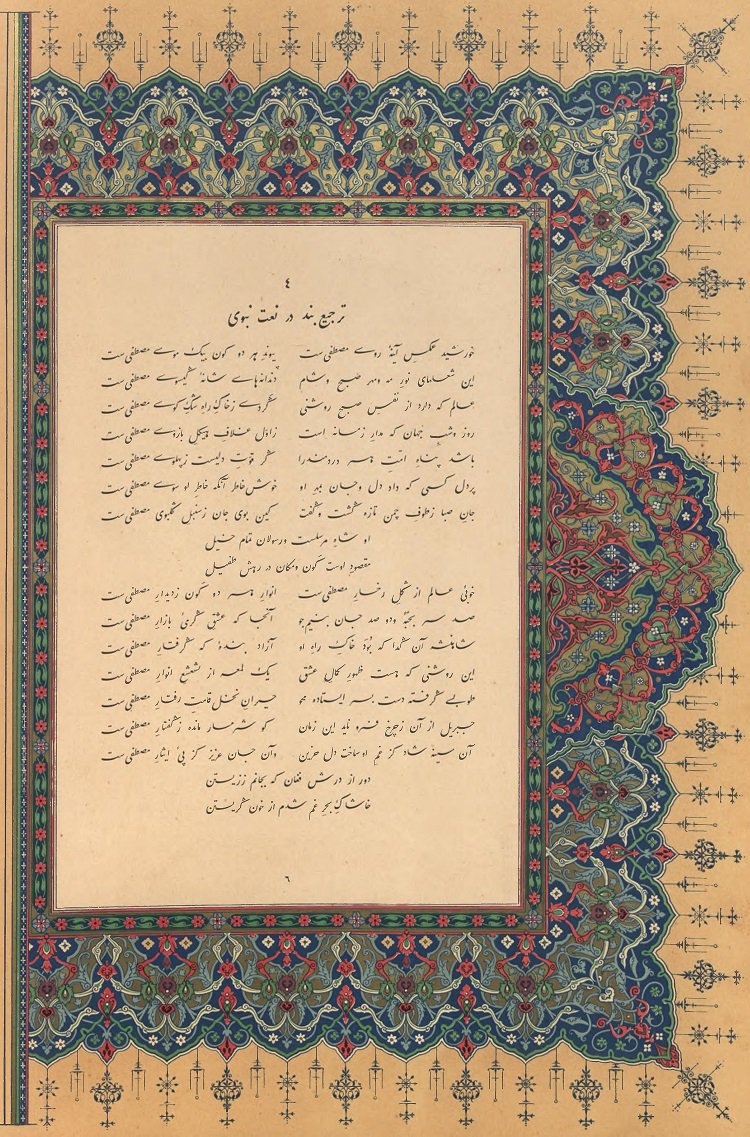 ٤
ترجیع بند در نعت نبوی
خورشید عکس آینهٔ روے مصطفی ست پیوند هر دو کون بیک موے مصطفی ست
این شعلهای نور مه ومهر صبح وشام دندانه‌هاے شانهٔ گیسوے مصطفی ست
عالم که دارد از نفس صبح روشنی گردے زخاک راه سگ کوے مصطفی ست
روز وشب جهان که مدار زمانه است زاول غلاف هیکل بازوے مصطفی ست
باشد پناه امت وهم دردمندرا گر قوت دلیست زپهلوے مصطفی ست
پردل کسی که داد دل وجان بدید او خوش خاطر آنکه خاطر او سوے مصطفی ست
جان صبا زطوف چمن تازه گشت وگفت کین بوی جان زسنبل گلبوی مصطفی ست
او شاه مرسلست ورسولان تمام خیل
مقصود اوست کون ومکان در رهش طفیل
خوبیٔ عالم از شکل رخسار مصطفی ست انوار هر دو کون زدیدار مصطفی ست
صد سر بحبّهٔ ودو صد جان بنیم جو آنجا که عشق گرمیٔ بازار مصطفی ست
شاهنشه آن گدا که بُوَد خاک راه او آزاد بندهٔ که گرفتار مصطفی ست
این روشنی که هست ظهور کمال عشق یک لمعه از تشعشع انوار مصطفی ست
طوبے گرفته دست بسر ایستاده محو حیران نخل قامت رفتار مصطفی ست
جبریل از آن زچرخ فرو ناید این زمان کو شرمسار مانده زگفتار مصطفی ست
آن سینهٔ شاد کز غم او ساخت دل حزین وآن جان عزیز کز پیٔ ایثار مصطفی ست
دور از درش فغان که بجانم ززیستن
خاشاک بحر غم شدم از خون گریستن
٦